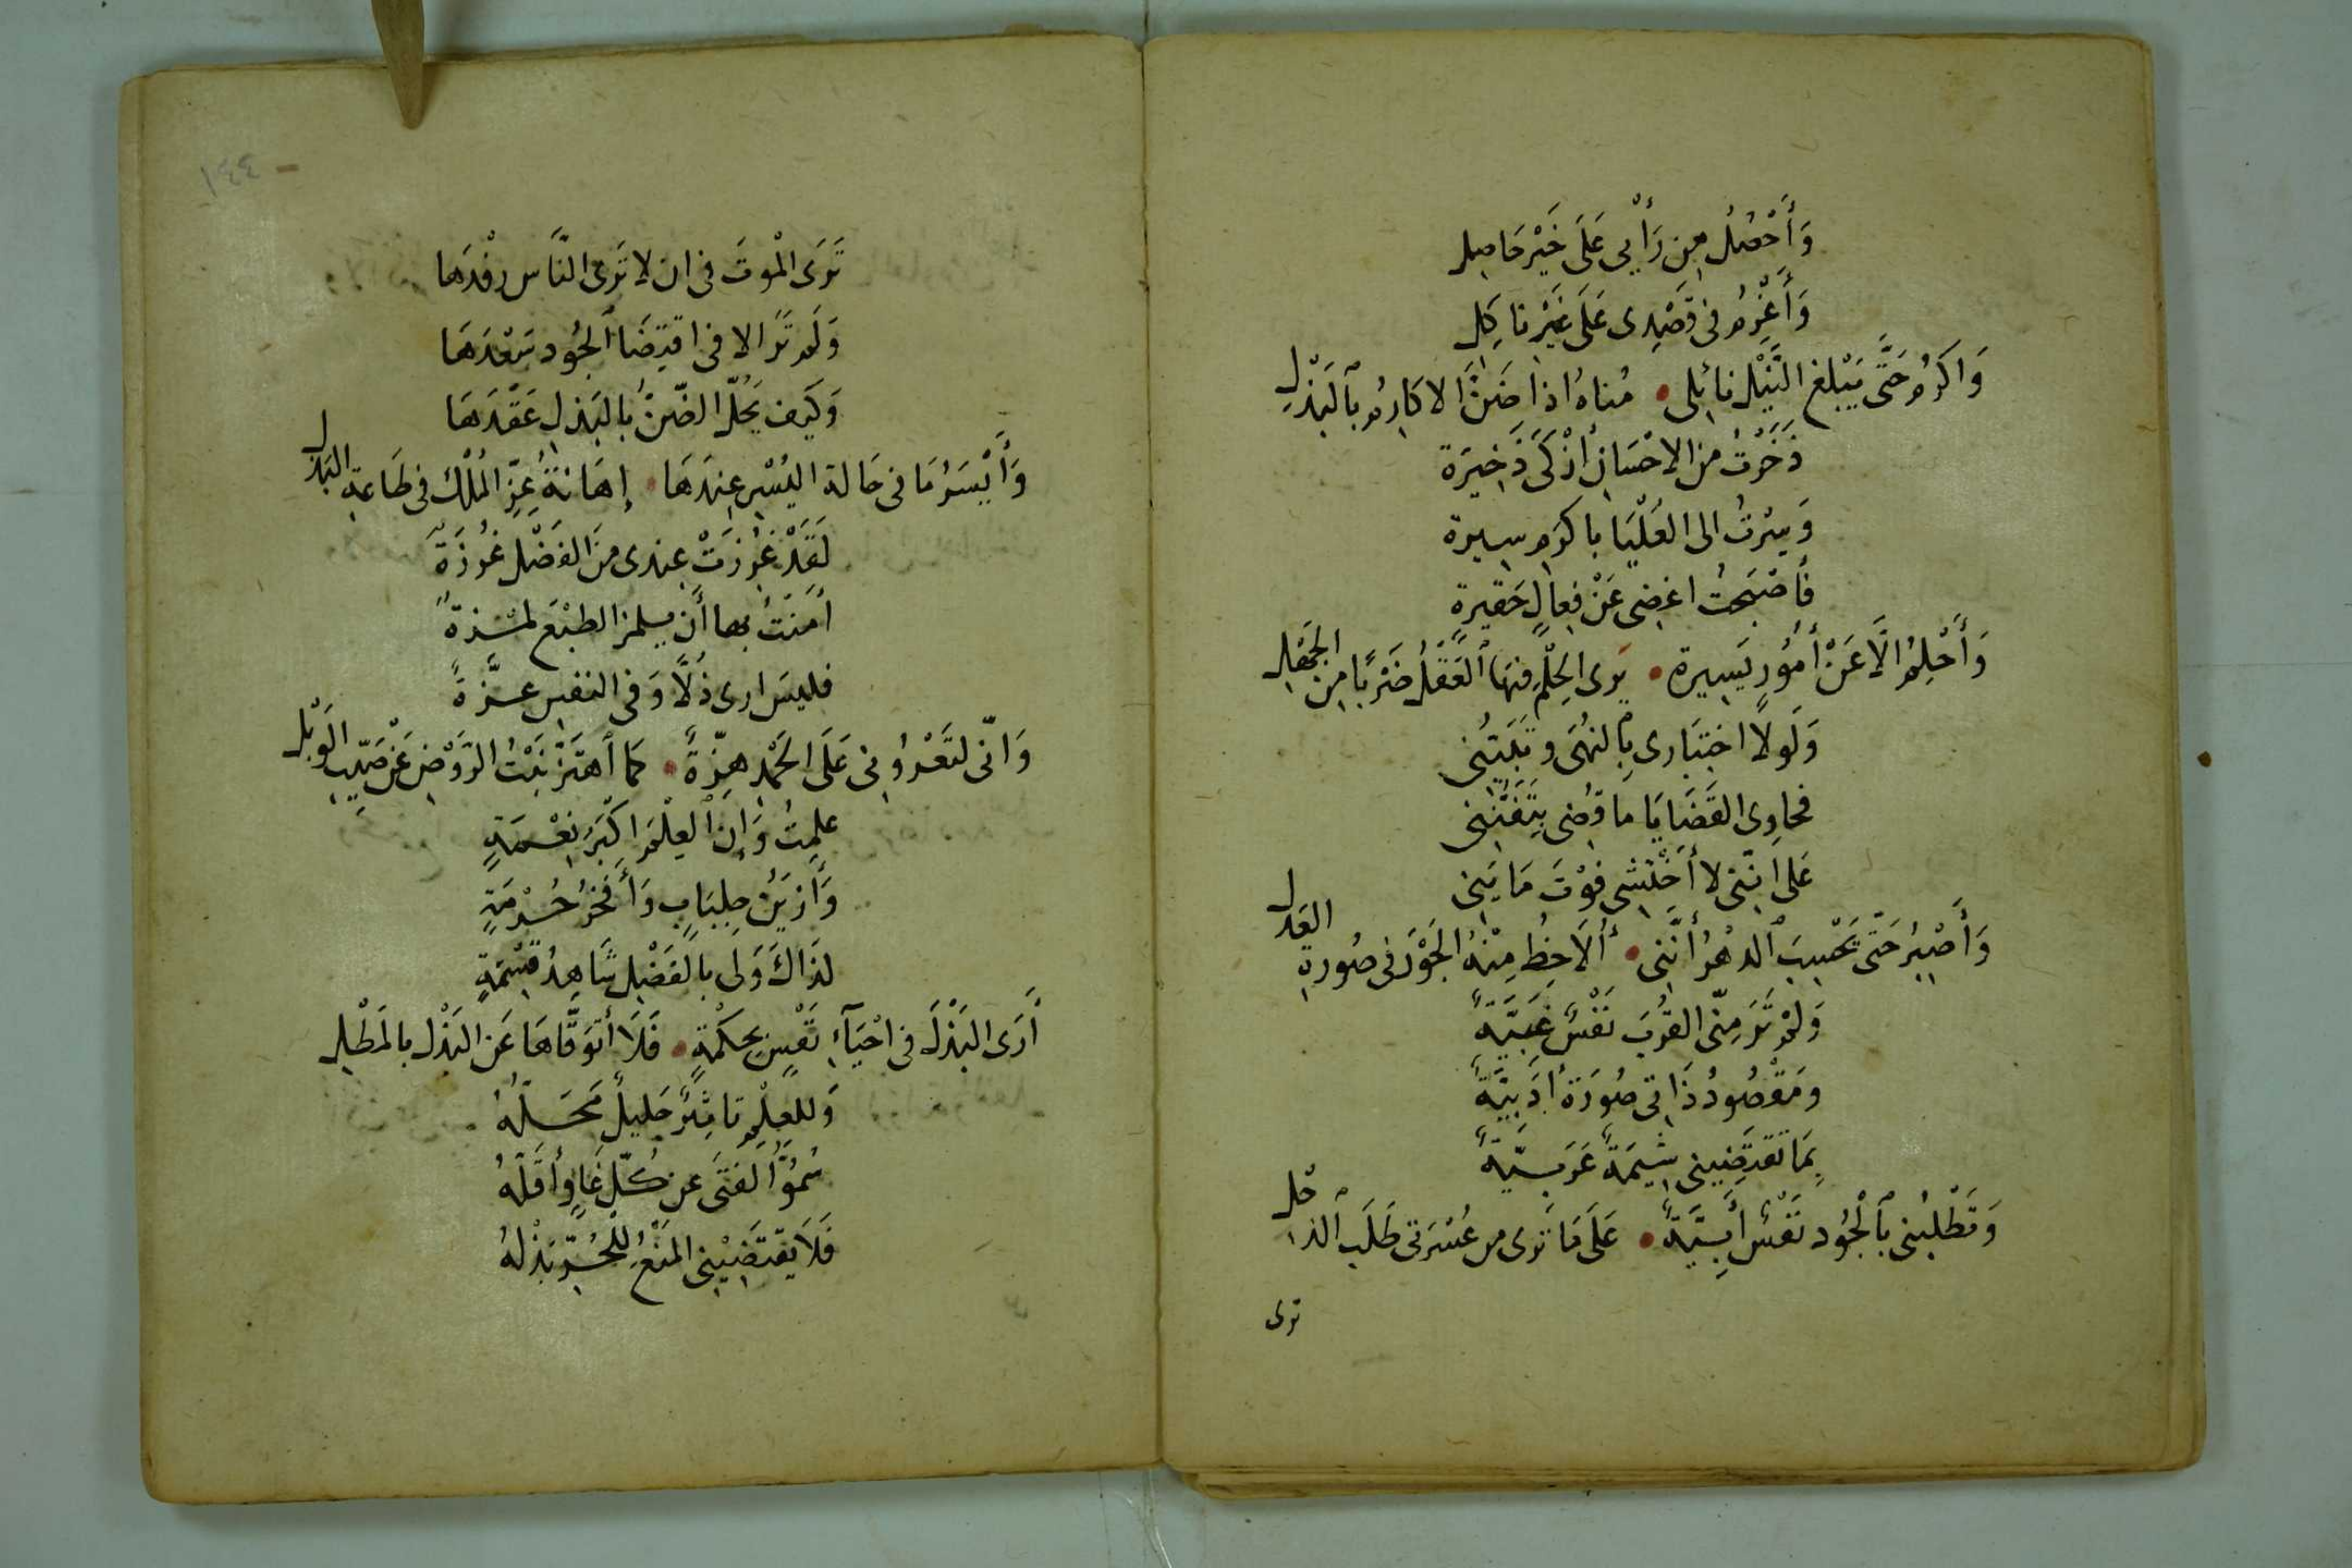 وَأَحْصُلُ مِن رَأْيِي عَلَى خَيْرِ حَاصِلِ
وَأَعْزِمُ فِي قَصْدِي عَلَى غَيْرِ نَاكِلِ
وَاكرُم حَتَّى يَبْلغ النَّيْل نائِلى • مُناهُ اذا ضَنَّ الاكَارِمُ بِالبَذْلِ
ذَخَرْتُ مِنَ الاحْسَانِ أزْكَى ذَخِيرَة
وَسِرْتُ الى العَلْيَا باكرَمِ سِيرة
فَأَصْبَحتُ اغضِى عَنْ فِعالٍ حَقيرةٍ
وَأَحْلمُ الَّا عَنْ أمُورٍ يَسِيرة • يَرى الحِلْمَ فيهَا العَقْلُ ضَرْبًا مِن الجَهْلِ
وَلَولا اختِبَارى بِالنهَى وتَثَبُّتِى
فحاوِى القَضَايَا ما قضِى بِتَفَنُّنِى
عَلى انّنى لا أخْتَشِى فَوْتَ مَا يَنِى
وَأَصْبِرُ حَتّى يَحْسِبَ الدهْرُ أنَّنِى • ألَاحِظُ مِنْهُ الجَوْرَ فى صُورةِ العَدلِ
وَلمْ تَرَ مِنّى القُربَ نَفْسٌ غَبِيَّةٌ
ومَقْصُودُ ذَاتى صُورَةٌ أدَبِيَّةٌ
بِمَا تَقتَضِينِى شِيمَةٌ عَرَبيّةٌ
وَتَطْلبُنِى بِالجُود نَفْسٌ أبِيَّةٌ • عَلَى مَا تَرى من عُسْرَتى طَلَبَ الذحْلِ
ترى
١٤٤
تَرَى الْموتَ فى ان لا تَرى النَّاس رِفْدَهَا
وَلَم تَرَ الا فى اقتِضَا الجُودِ سَعْدَهَا
وَكَيفَ يَحُلّ الضّنُّ بِالبَذلِ عَقْدَهَا
وَأَيْسَرُ مَا فى حَالة اليُسْرِ عِندَهَا • إهَانَةُ عِزِّ المُلْك فى طَاعةِ البَذلِ
لَقَدْ غُرِزَتْ عِندى منَ الفَضْل غُرزَةٌ
أمَنتُ بها أن يلمز الطبْعَ لمْزةٌ
فليسَ ارى ذُلًّا وَفى النفسِ عزَّةً
وَانّى لتَعْرُونِى عَلَى الحَمْدِ هِزّةٌ • كمَا اهتَزّ نَبْتُ الرَّوْضِ عَنْ صَيِّبِ الوَبْلِ
عَلِمتُ وَإنَّ العِلْمَ اكْبَرُ نِعْمَةٍ
وَأزيَنُ جِلبَابٍ وَأفْخَرُ حُرْمَةٍ
لِذَاكَ وَلى بِالفَضْلِ شَاهِدُ قِسْمَةٍ
أرَى البَذْلَ فى احْيَآءِ نَفْسٍ بِحِكْمَةٍ • فَلَا أتَوَقَّاهَا عَنِ البَذْل بالمَطْلِ
وَلِلعِلْمِ تاثِيرٌ جَليلٌ مَحَلُّهُ
سُمُوُّ الفَتَى عن كُلِّ عَارٍ وأقَلّهُ
فَلَا يَقتَضِيْنِى المَنْعُ لِلحُرِّ بَذْلهُ